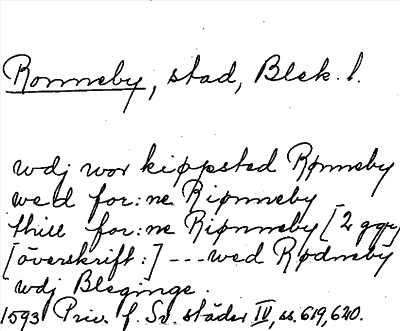 Ronneby, stad, Blek. l.
wdj wor kiøpsted Rønneby
wed for:ne Riønneby
thill for:ne Riønneby [2 ggr]
[överskrift:] --- wed Rødneby
wdj Bleginge.
1593 Priv. f. Sv. städer IV, ss. 619, 620.